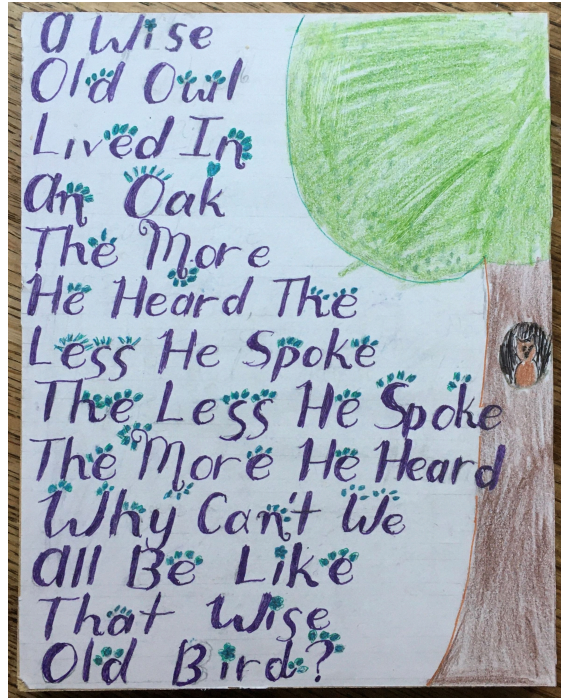 A Wise
Old Owl
Lived In
An Oak
The More
He Heard The
Less He Spoke
The Less He Spoke
The More He Heard
Why Can't We
All Be Like
That Wise
Old Bird?